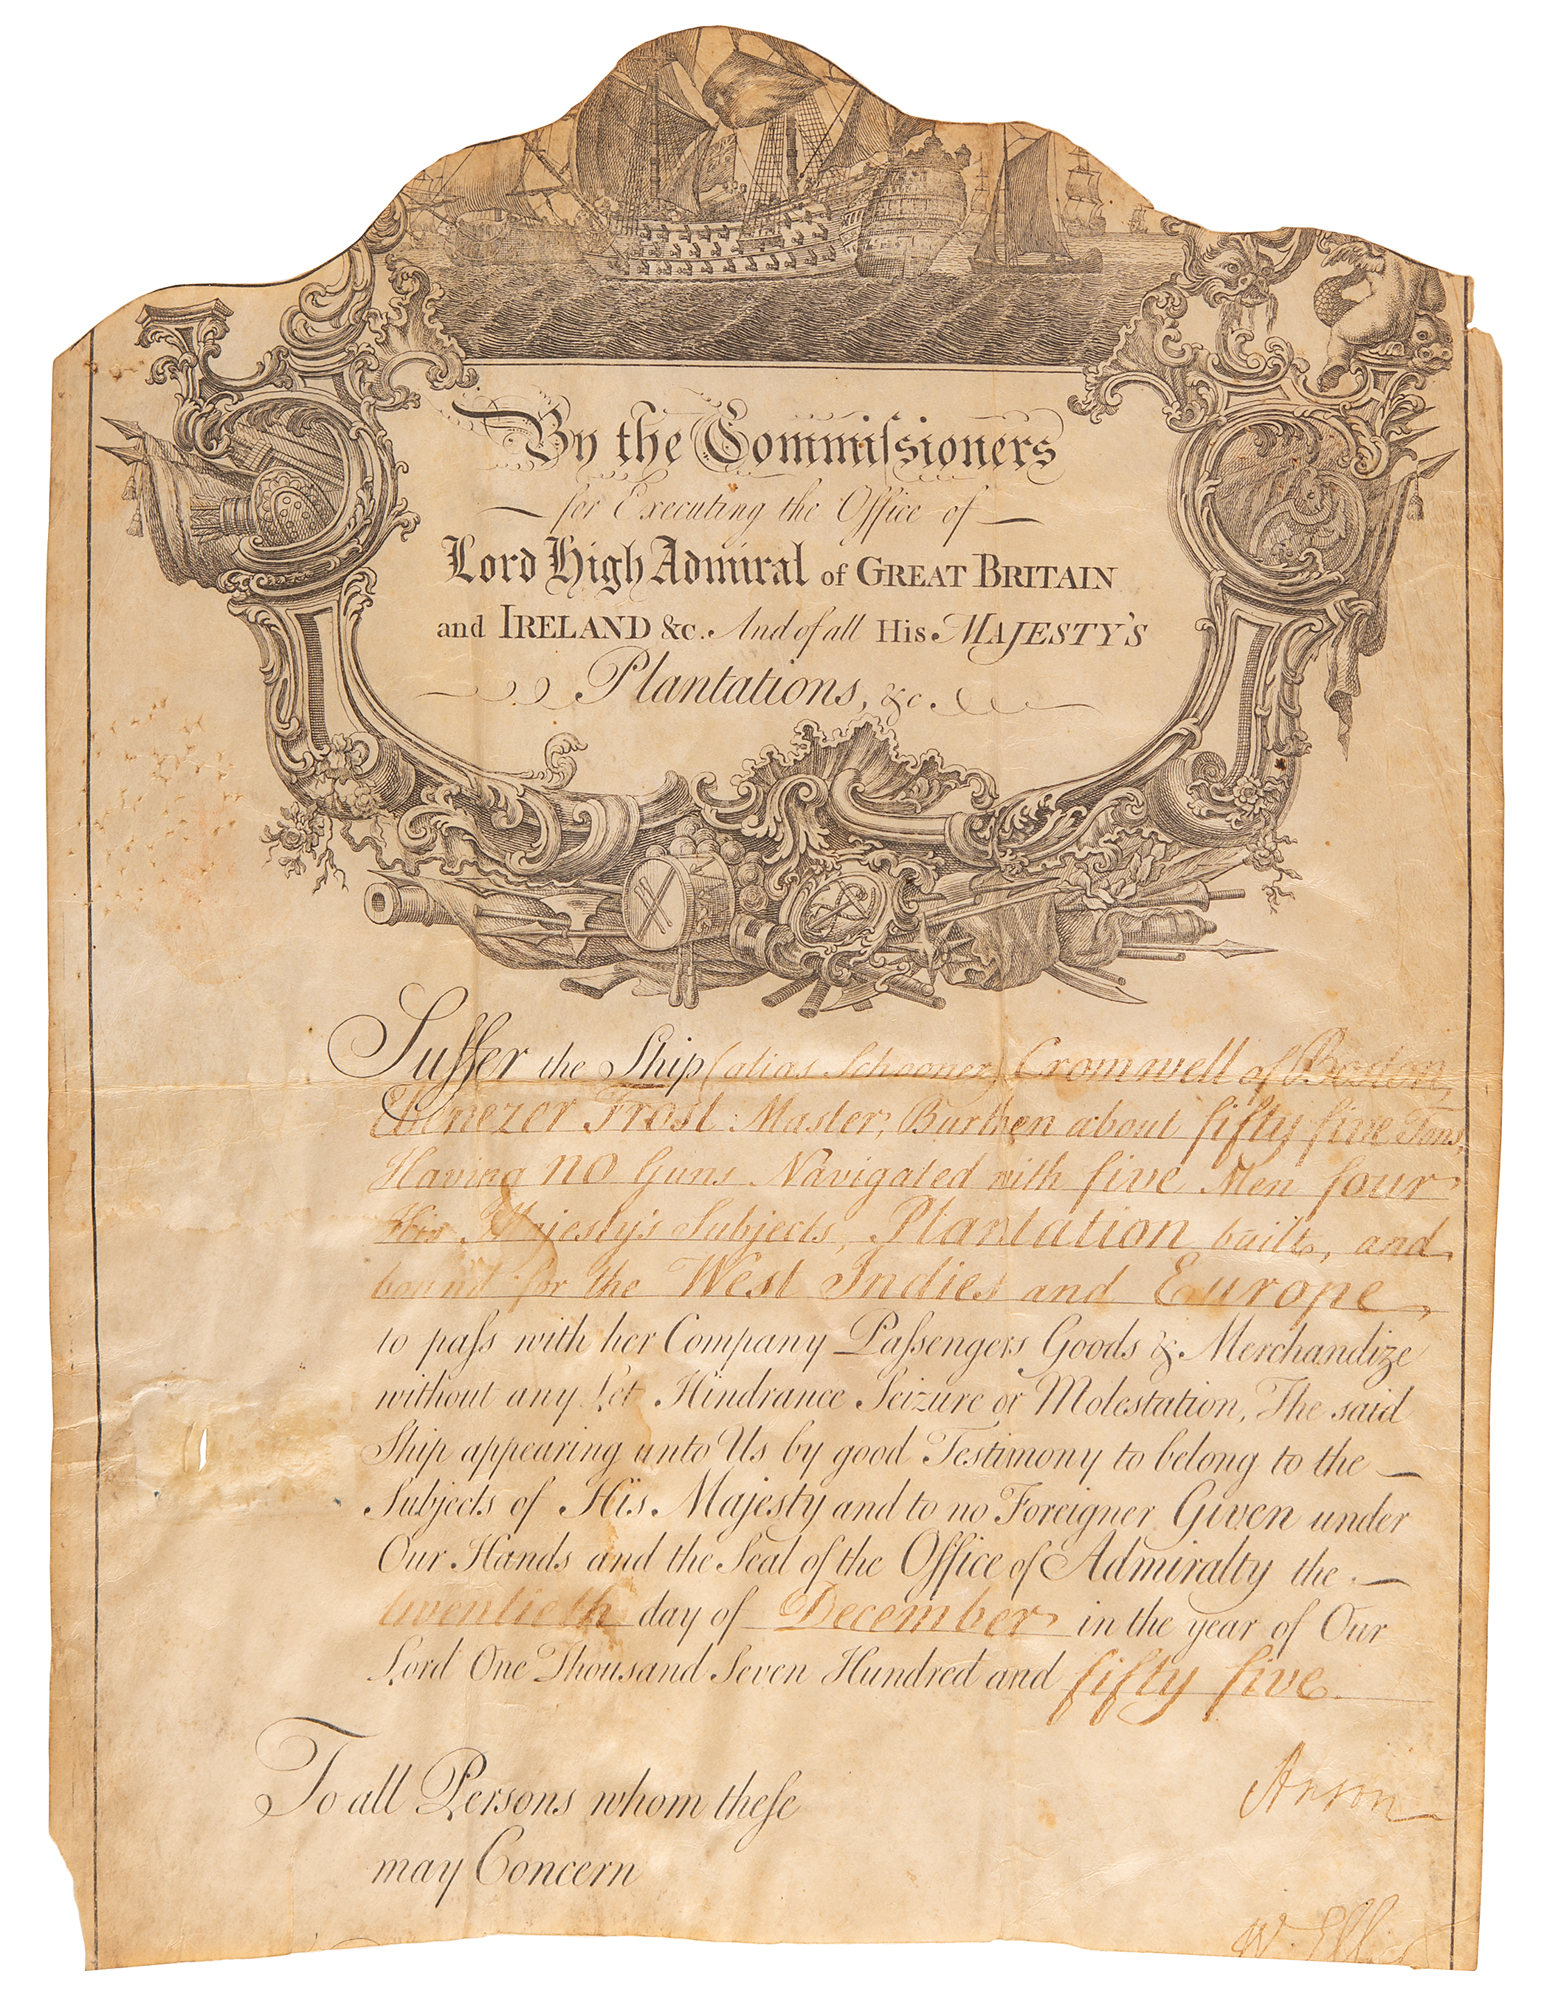 By the Commiſsioners
for Executing the Office of
Lord High Admiral of GREAT BRITAIN
and IRELAND &c. And of all His MAJESTY'S
Plantations, &c.
Suffer the Ship (alias Schooner) Cromwell of Boston,
Ebenezer Frost Master, Burthen about fifty five Tons,
Having no Guns Navigated with five Men four
His Majesty's Subjects, Plantation built, and
bound for the West Indies and Europe,
to paſs with her Company Paſsengers Goods & Merchandize
without any Let Hindrance Seizure or Molestation, The said
Ship appearing unto Us by good Testimony to belong to the
Subjects of His Majesty and to no Foreigner Given under
Our Hands and the Seal of the Office of Admiralty the
twentieth day of December in the year of Our
Lord One Thousand Seven Hundred and fifty five.
To all Persons whom theſe
may Concern
Anson
W. Ellis